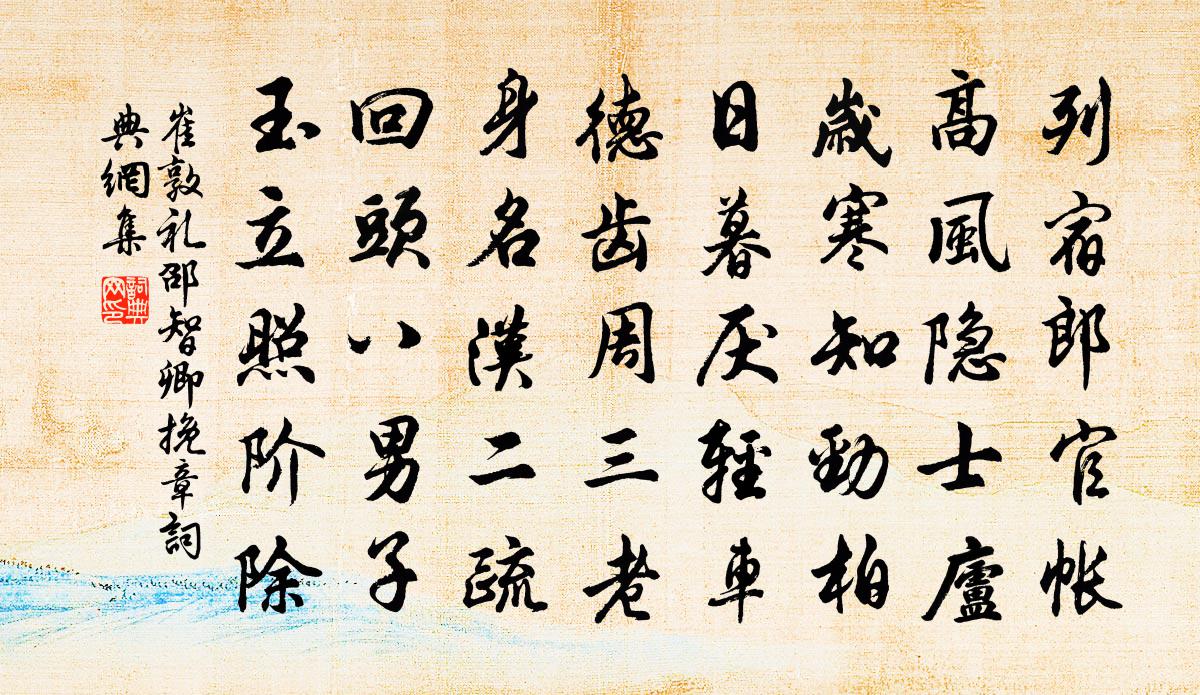 列宿郎官帐
高風隐士廬
歳寒知勁柏
日暮厌輕車
德齿周三老
身名漢二疏
回頭八男子
玉立照阶除
崔敦礼邵智卿挽章詞
典網集
詞典网印